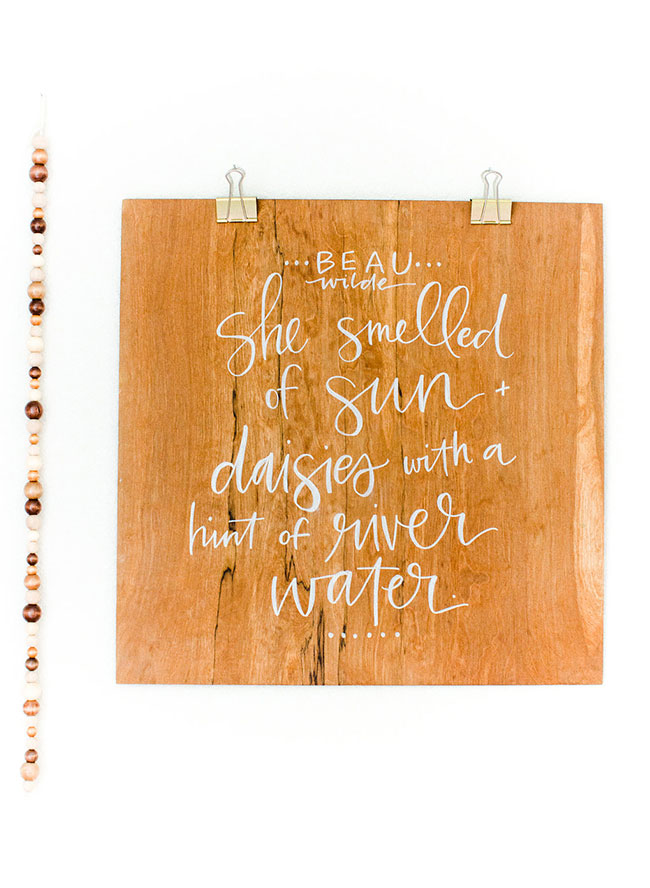 ...BEAU...
wilde
she smelled
of sun +
daisies with a
hint of river
water.
......